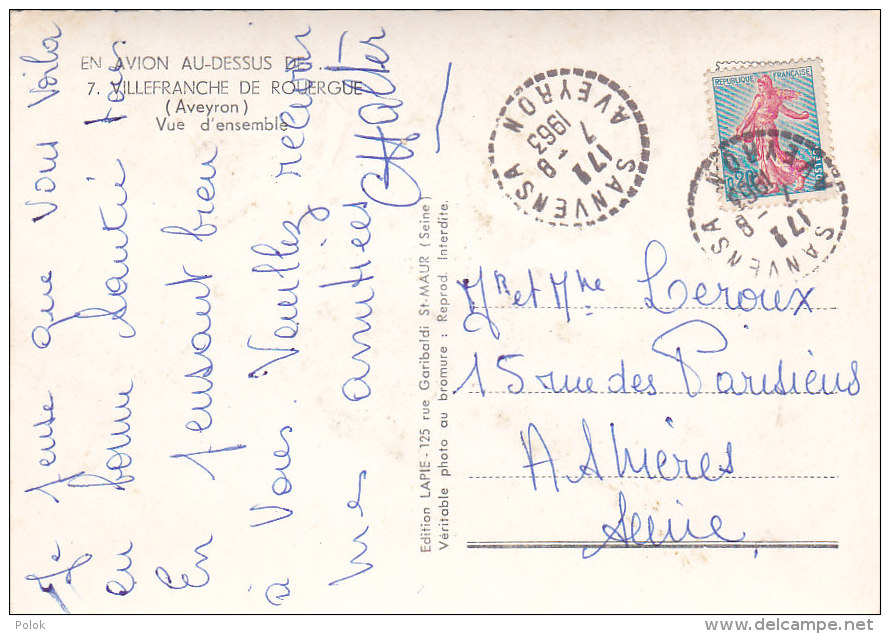 EN AVION AU-DESSUS DE ...
7. VILLEFRANCHE DE ROUERGUE
(Aveyron)
Vue d'ensemble
Je pense que Vous Voila
en bonne Santé tous
En pensant bien
à Vous. Veuillez recevoir
mes amitiées
Edition LAPIE - 125 rue Garibaldi St-MAUR (Seine)
Véritable photo au bromure : Reprod. Interdite.
SANVENSA
AVEYRON
17 8
7
1963
REPUBLIQUE FRANÇAISE
0,20
POSTES
SANVENSA
AVEYRON
17 8
7
1963
Mr et Mme Leroux
15 rue des Parisiens
Asnières
Seine
Polok
delcampe.net